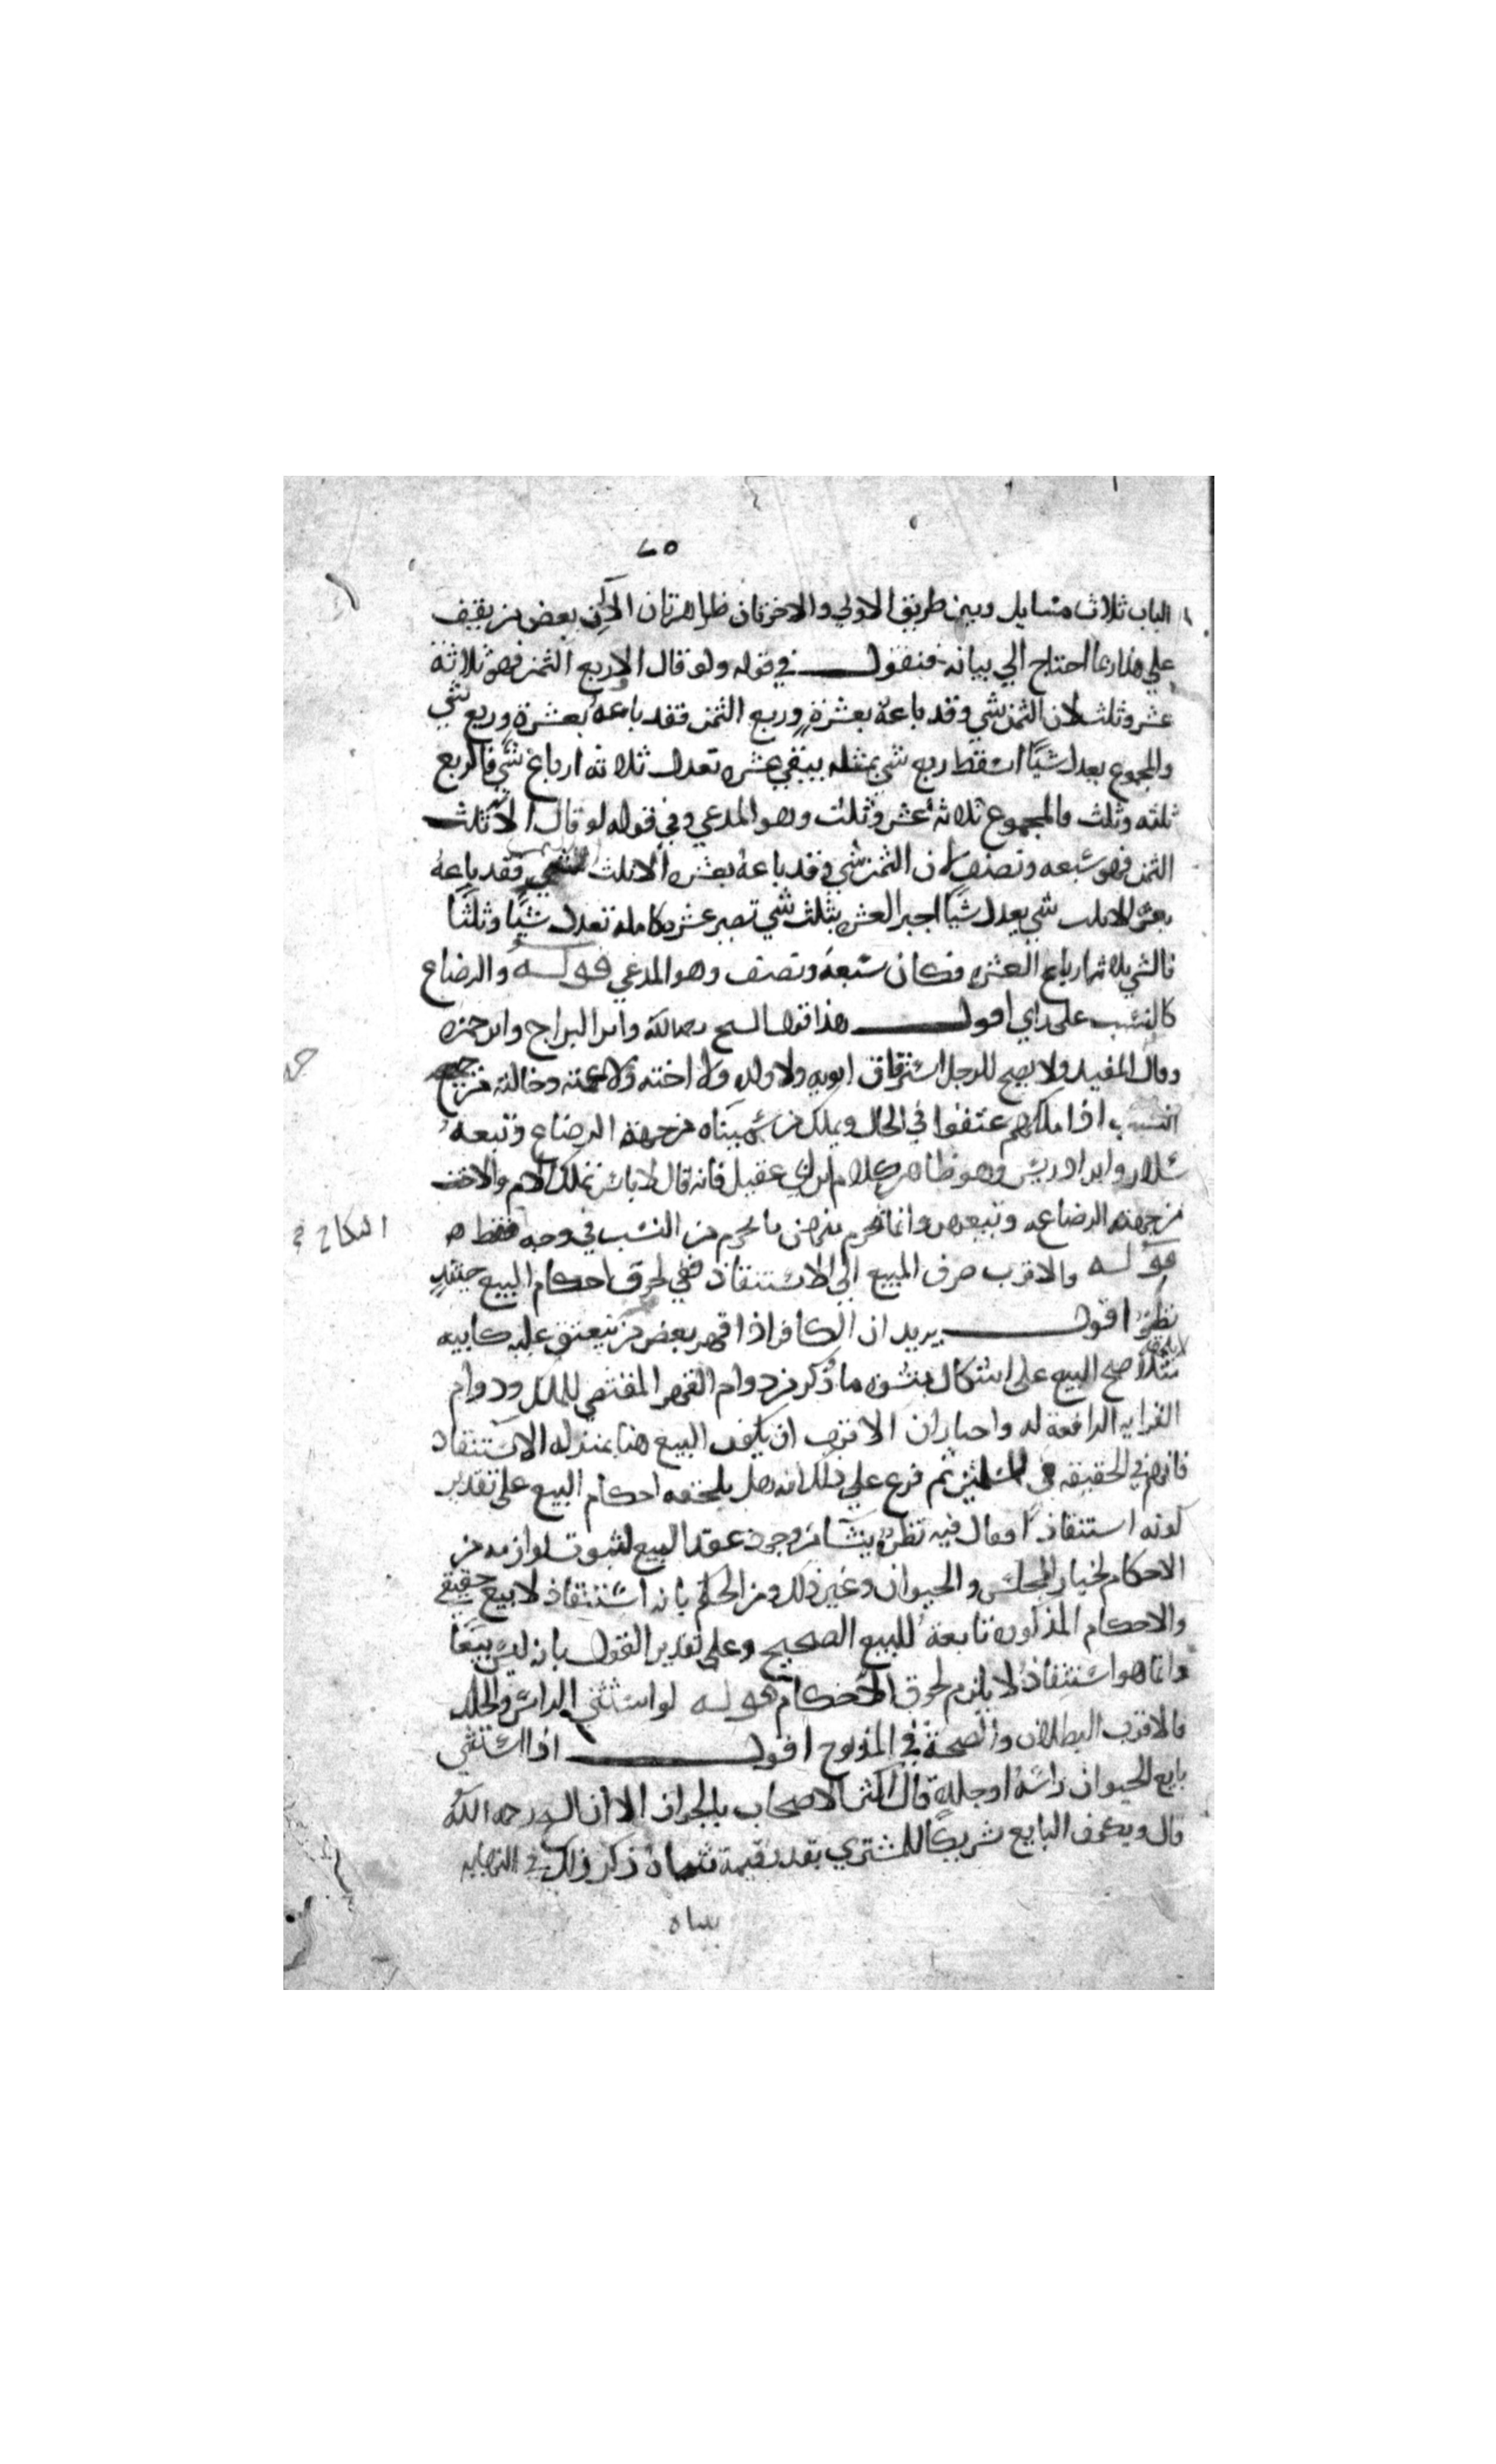 ٢٥
الباب ثلاث مسايل وبين طريق الاولي والاخرتان ظاهرتان الا ان بعض من يقف
علي هذا ربما احتاج الي بيانه فنقول في قوله ولو قال الا ربع الثمن فهو ثلاثة
عشر وثلث لان الثمن شي وقد باعه بعشرة وربع الثمن فقد باعه بعشرة وربع شي
والمجموع يعدل شيًا اسقط ربع شي بمثله يبقي عشره تعدل ثلاثه ارباع شي فالربع
ثلثه وثلث فالمجموع ثلاثه عشر وثلث وهو المدعي وفي قوله لو قال الا ثلث
الثمن فهو سبعه ونصف لان الثمن شي وقد باعه بعشره الا ثلث الثمن فقد باعه
بعشره الا ثلث شي يعدل شيًا اجبر العشره بثلث شي تصير عشره كامله تعدل شيًا وثلثًا
فالشي ثلاثه ارباع العشره فكان سبعه ونصف وهو المدعي قوله والرضاع
كالنسب علي راي اقول هذا قول الشيخ رحمه الله وابن البراج وابن حمزه
وقال المفيد ولا يصح للرجل استرقاق ابويه ولا ولده ولا اخته ولا عمته وخالته من جهه
النسب اذا ملكهم عتقوا في الحال ويملك من سميناه من جهة الرضاع وتبعه
سلار وابن ادريس وهو ظاهر كلام ابن ابي عقيل فانه قال لا باس بملك الام والاخت
من جهة الرضاعه وتبيعهن وانما يحرم منهن ما يحرم من النسب في وجه النكاح فقط
قوله والاقرب صرف المبيع الي الاستنقاذ ففي لحوق احكام البيع حينئذ
نظر اقول يريد ان الكافر اذا قهر بعض من ينعتق عليه كابيه
مثلا صح البيع علي اشكال منشوه ما ذكر من دوام القهر المقتضي للملك ودوام
القرابه الرافعة له واختار ان الاقرب ان يكون البيع هنا بمنزله الاستنقاذ
فانهم في الحقيقه في للمسلمين ثم فرع علي ذلك انه هل يلحقه احكام البيع علي تقدير
كونه استنقاذًا فقال فيه نظر ينشا من وجود عقد البيع لثبوت لوازمه من
الاحكام لخيار المجلس والحيوان وغير ذلك ومن الحكم بانه استنقاذ لا بيع حقيقي
والاحكام المذكوره تابعة للبيع الصحيح وعلي تقدير القول بانه ليس بيعًا
وانما هو استنقاذ لا يلزم لحوق الاحكام قوله لو استثني الراس والجلد
فالاقرب البطلان والصحة في المذبوح اقول اذا استثني
بايع الحيوان راسه او جلده قال اكثر الاصحاب بالجواز الا ان الشيخ رحمه الله
قال ويكون البايع شريكًا للمشتري بقدر قيمة ثنياه ذكر ذلك في النهايه